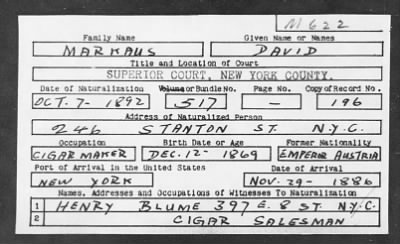 M622
Family Name Given Name or Names
MARKAUS DAVID
Title and Location of Court
SUPERIOR COURT, NEW YORK COUNTY.
Date of Naturalization Volume or Bundle No. Page No. Copy of Record No.
OCT. 7- 1892 517 - 196
Address of Naturalized Person
246 STANTON ST. N.Y.C.
Occupation Birth Date or Age Former Nationality
CIGAR MAKER DEC. 12- 1869 EMPEROR AUSTRIA
Port of Arrival in the United States Date of Arrival
NEW YORK NOV. 29- 1886
Names, Addresses and Occupations of Witnesses To Naturalization
1 HENRY BLUME 397 E. 8 ST. N.Y.C.
2 CIGAR SALESMAN